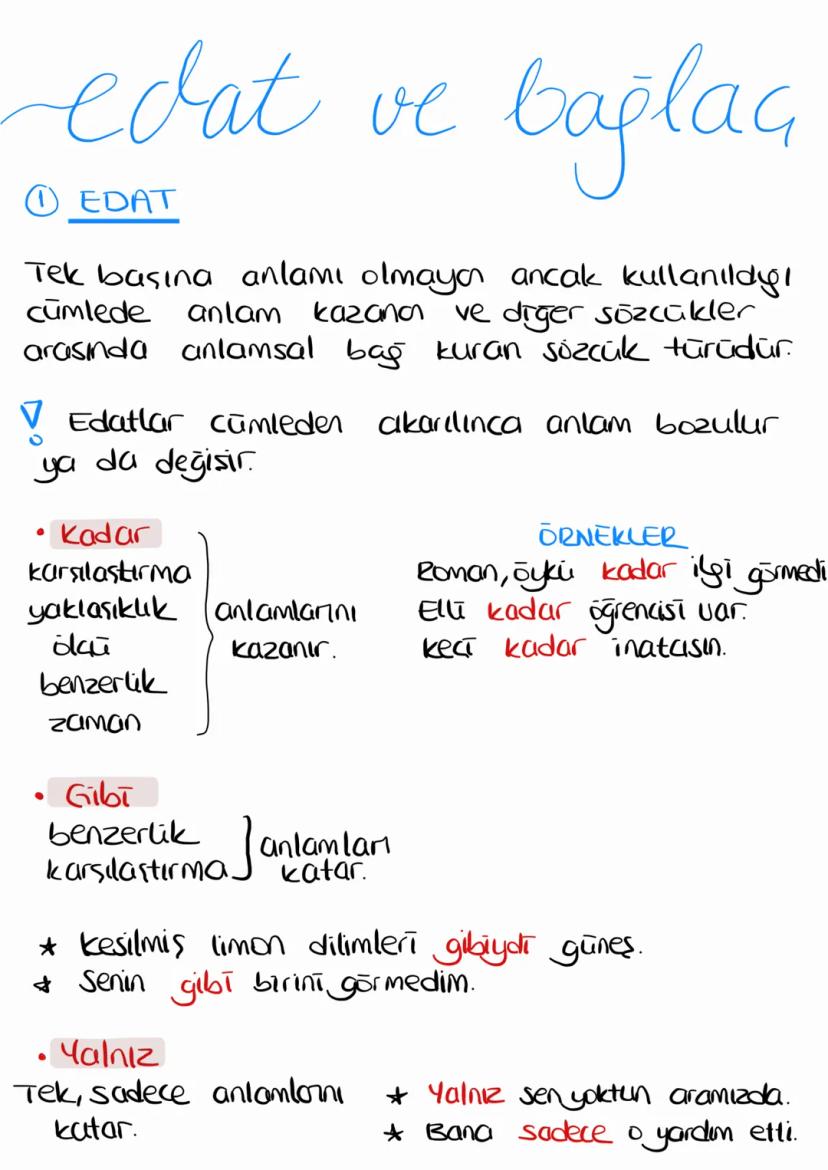 edat ve bağlaç
① EDAT
Tek başına anlamı olmayan ancak kullanıldığı
cümlede anlam kazanan ve diğer sözcükler
arasında anlamsal bağ kuran sözcük türüdür.
! Edatlar cümleden çıkarılınca anlam bozulur
ya da değişir.
• Kadar
karşılaştırma
yaklaşıklık
ölçü
benzerlik
zaman
anlamlarını
kazanır.
ÖRNEKLER
Roman, öykü kadar ilgi görmedi
Elli kadar öğrencisi var.
keçi kadar inatçısın.
• Gibi
benzerlik
karşılaştırma
anlamları
katar.
* kesilmiş limon dilimleri gibiydi güneş.
* Senin gibi birini görmedim.
• Yalnız
Tek, sadece anlamlarını
katar.
* Yalnız sen yoktun aramızda.
* Bana sadece o yardım etti.